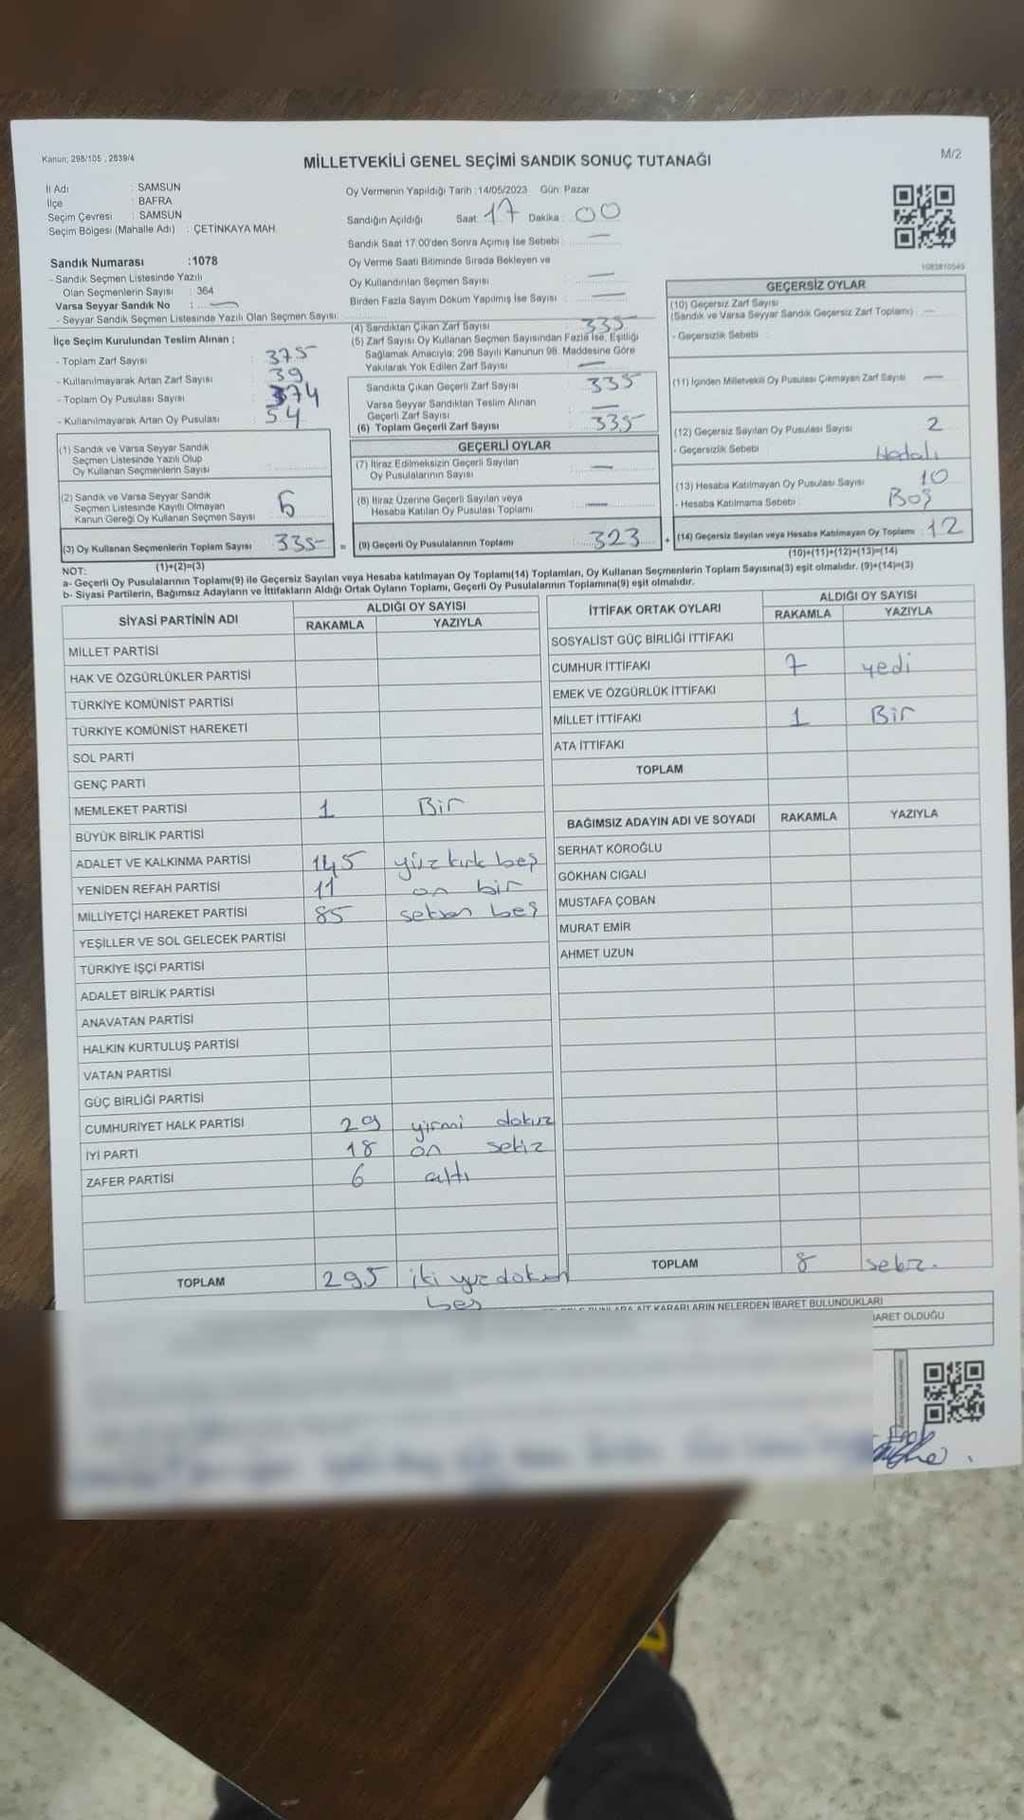 Kanun; 298/105 , 2839/4
MİLLETVEKİLİ GENEL SEÇİMİ SANDIK SONUÇ TUTANAĞI
M/2
İl Adı : SAMSUN
İlçe : BAFRA
Seçim Çevresi : SAMSUN
Seçim Bölgesi (Mahalle Adı) : ÇETİNKAYA MAH.
Oy Vermenin Yapıldığı Tarih :14/05/2023 Gün: Pazar
Sandığın Açıldığı Saat 17 Dakika : 00
Sandık Saat 17:00'den Sonra Açımış İse Sebebi : —
Oy Verme Saati Bitiminde Sırada Bekleyen ve
Oy Kullandırılan Seçmen Sayısı —
Birden Fazla Sayım Döküm Yapılmış İse Sayısı : —
Sandık Numarası :1078
- Sandık Seçmen Listesinde Yazılı
Olan Seçmenlerin Sayısı : 364
Varsa Seyyar Sandık No : —
- Seyyar Sandık Seçmen Listesinde Yazılı Olan Seçmen Sayısı:
İlçe Seçim Kurulundan Teslim Alınan ;
- Toplam Zarf Sayısı 375
- Kullanılmayarak Artan Zarf Sayısı 39
- Toplam Oy Pusulası Sayısı 374
- Kullanılmayarak Artan Oy Pusulası 54
(1) Sandık ve Varsa Seyyar Sandık
Seçmen Listesinde Yazılı Olup
Oy Kullanan Seçmenlerin Sayısı
(2) Sandık ve Varsa Seyyar Sandık
Seçmen Listesinde Kayıtlı Olmayan
Kanun Gereği Oy Kullanan Seçmen Sayısı
(3) Oy Kullanan Seçmenlerin Toplam Sayısı 335
(1)+(2)=(3)
(4) Sandıktan Çıkan Zarf Sayısı 335
(5) Zarf Sayısı Oy Kullanan Seçmen Sayısından Fazla İse, Eşitliği
Sağlamak Amacıyla; 298 Sayılı Kanunun 98. Maddesine Göre
Yakılarak Yok Edilen Zarf Sayısı —
Sandıkta Çıkan Geçerli Zarf Sayısı 335
Varsa Seyyar Sandıktan Teslim Alınan
Geçerli Zarf Sayısı —
(6) Toplam Geçerli Zarf Sayısı 335
GEÇERLİ OYLAR
(7) İtiraz Edilmeksizin Geçerli Sayılan
Oy Pusulalarının Sayısı —
(8) İtiraz Üzerine Geçerli Sayılan veya
Hesaba Katılan Oy Pusulası Toplamı —
= (9) Geçerli Oy Pusulalarının Toplamı 323
1083810549
GEÇERSİZ OYLAR
(10) Geçersiz Zarf Sayısı
(Sandık ve Varsa Seyyar Sandık Geçersiz Zarf Toplamı) —
- Geçersizlik Sebebi :
(11) İçinden Milletvekili Oy Pusulası Çıkmayan Zarf Sayısı —
(12) Geçersiz Sayılan Oy Pusulası Sayısı 2
- Geçersizlik Sebebi
(13) Hesaba Katılmayan Oy Pusulası Sayısı 10
- Hesaba Katılmama Sebebi : Boş
+ (14) Geçersiz Sayılan veya Hesaba Katılmayan Oy Toplamı 12
(10)+(11)+(12)+(13)=(14)
NOT:
a- Geçerli Oy Pusulalarının Toplamı(9) ile Geçersiz Sayılan veya Hesaba katılmayan Oy Toplamı(14) Toplamları, Oy Kullanan Seçmenlerin Toplam Sayısına(3) eşit olmalıdır. (9)+(14)=(3)
b- Siyasi Partilerin, Bağımsız Adayların ve İttifakların Aldığı Ortak Oyların Toplamı, Geçerli Oy Pusulalarının Toplamına(9) eşit olmalıdır.
SİYASİ PARTİNİN ADI ALDIĞI OY SAYISI
RAKAMLA YAZIYLA
MİLLET PARTİSİ
HAK VE ÖZGÜRLÜKLER PARTİSİ
TÜRKİYE KOMÜNİST PARTİSİ
TÜRKİYE KOMÜNİST HAREKETİ
SOL PARTİ
GENÇ PARTİ
MEMLEKET PARTİSİ 1 Bir
BÜYÜK BİRLİK PARTİSİ
ADALET VE KALKINMA PARTİSİ 145 yüz kırk beş
YENİDEN REFAH PARTİSİ 11 on bir
MİLLİYETÇİ HAREKET PARTİSİ 85 seksen beş
YEŞİLLER VE SOL GELECEK PARTİSİ
TÜRKİYE İŞÇİ PARTİSİ
ADALET BİRLİK PARTİSİ
ANAVATAN PARTİSİ
HALKIN KURTULUŞ PARTİSİ
VATAN PARTİSİ
GÜÇ BİRLİĞİ PARTİSİ
CUMHURİYET HALK PARTİSİ 29 yirmi dokuz
İYİ PARTİ 18 on sekiz
ZAFER PARTİSİ 6 altı
TOPLAM 295 iki yüz doksan
beş
İTTİFAK ORTAK OYLARI ALDIĞI OY SAYISI
RAKAMLA YAZIYLA
SOSYALİST GÜÇ BİRLİĞİ İTTİFAKI
CUMHUR İTTİFAKI 7 yedi
EMEK VE ÖZGÜRLÜK İTTİFAKI
MİLLET İTTİFAKI 1 Bir
ATA İTTİFAKI
TOPLAM
BAĞIMSIZ ADAYIN ADI VE SOYADI RAKAMLA YAZIYLA
SERHAT KÖROĞLU
GÖKHAN CIGALI
MUSTAFA ÇOBAN
MURAT EMİR
AHMET UZUN
TOPLAM 8 sekiz.
AİT KARARLARIN NELERDEN İBARET BULUNDUKLARI
BARET OLDUĞU